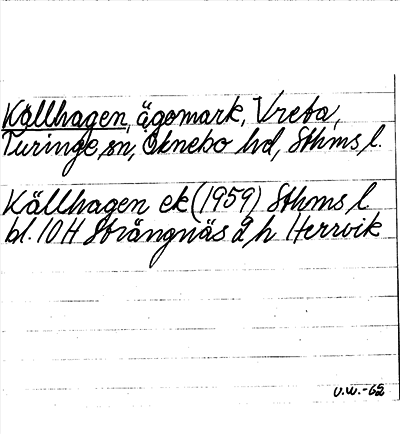 Källhagen, ägomark, Vreta,
Turinge sn, Öknebo hd, Sthms l.
Källhagen ek (1959) Sthms l.
bl. 10 H Strängnäs d h Herrvik
V.W.-62